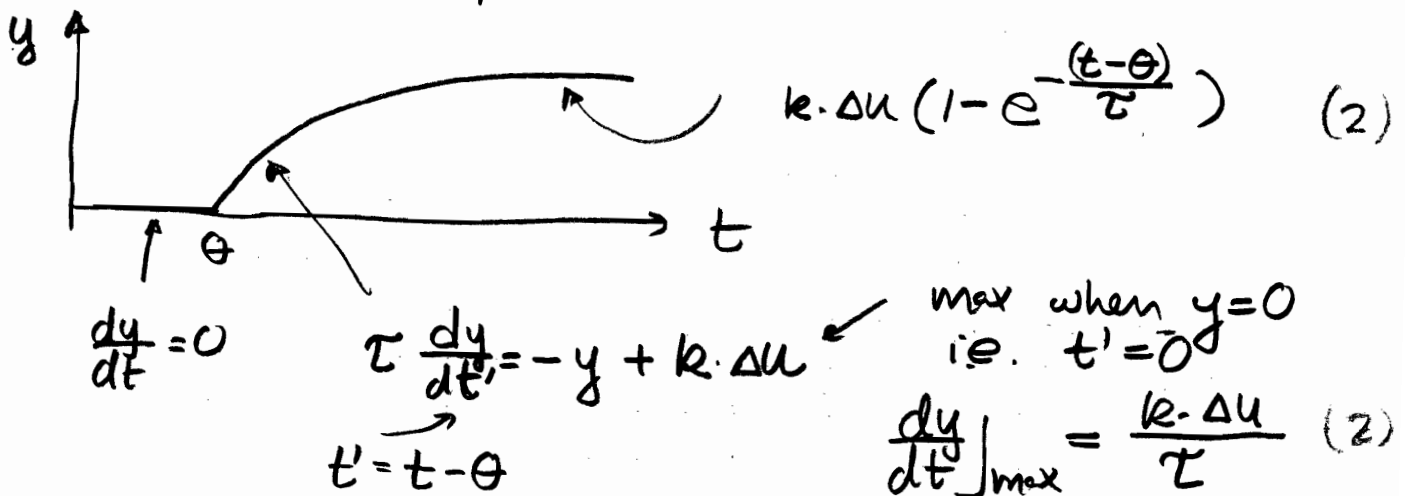 y
k·Δu (1 - e^{-(t-θ)/τ}) (2)
θ
t
dy/dt = 0
τ dy/dt' = -y + k·Δu
t' = t - θ
max when y=0
i.e. t' = 0
dy/dt]max = k·Δu/τ (2)